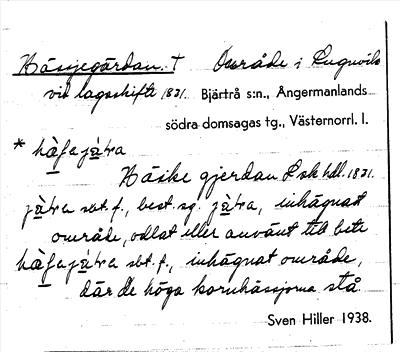 Hässjegärdan. † Område i Lugnvik
vid lagaskifte 1831. Bjärtrå s:n., Ångermanlands
södra domsagas tg., Västernorrl. l.
* hàʃajàra
Häske gjerdan Lsk hdl. 1831.
jàra sbt. f., best. sg. jàra, inhägnat
område, odlat eller använt till bete
hàʃajàra sbt. f., inhägnat område,
där de höga kornhässjorna stå
Sven Hiller 1938.